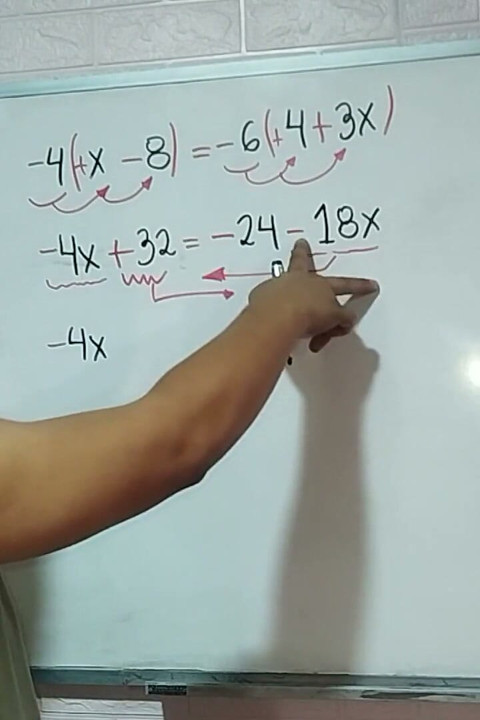 -4(+x -8) = -6(+4+3x)
-4x +32 = -24 - 18x
-4x